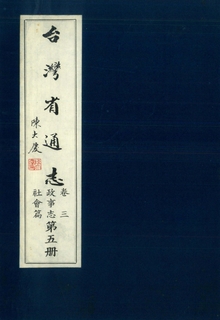 台灣省通志
陳大慶
卷三
政事志
社會篇
第五册